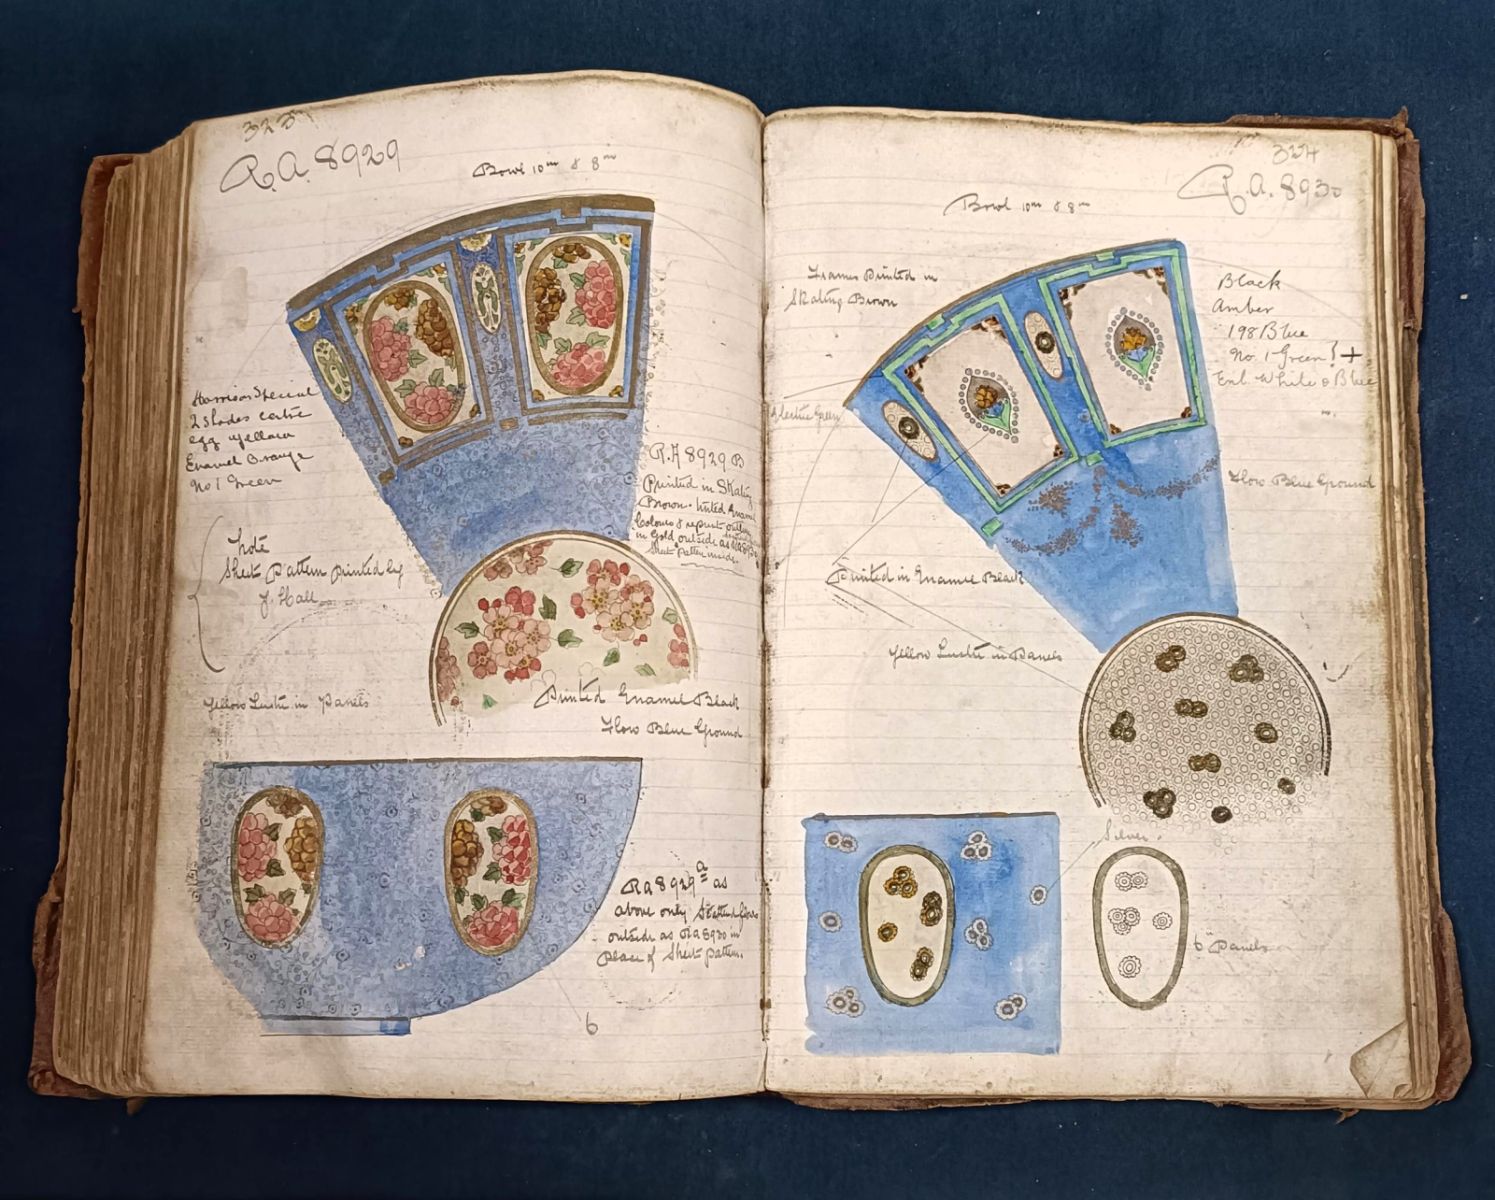 323
R.A. 8929
Bowl 10in & 8in
Harrison Special
2 Shades
egg yellow
Enamel Orange
No 1 Green
R.A 8929 B
Printed in Skating
Brown. tinted Enamel
Colours &
in Gold outside as RA8930
Sheet Pattern inside.
Note
Sheet Pattern printed by
J. Hall
Yellow Lustre in Panels
Printed Enamel Black
Flow Blue Ground
Ra 8929 a as
above only
outside as Ra8930 in
Place of Sheet pattern.
6
324
R.A. 8930
Bowl 10in & 8in
Frames Printed in
Skating Brown
Black
Amber
198 Blue
No. 1 Green } +
Enl. White & Blue
Electric Green
Flow Blue Ground
Printed in Enamel Black
Yellow Lustre in Panels
Silver.
6 Panels